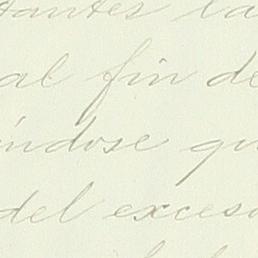 tantes la
al fin de
índose qu
del exceso